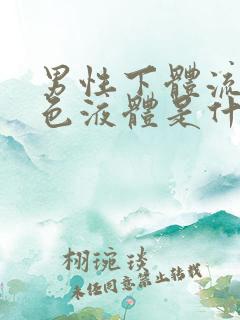 男性下體流
色液體是什
栩琬琰
未任同意禁止转载